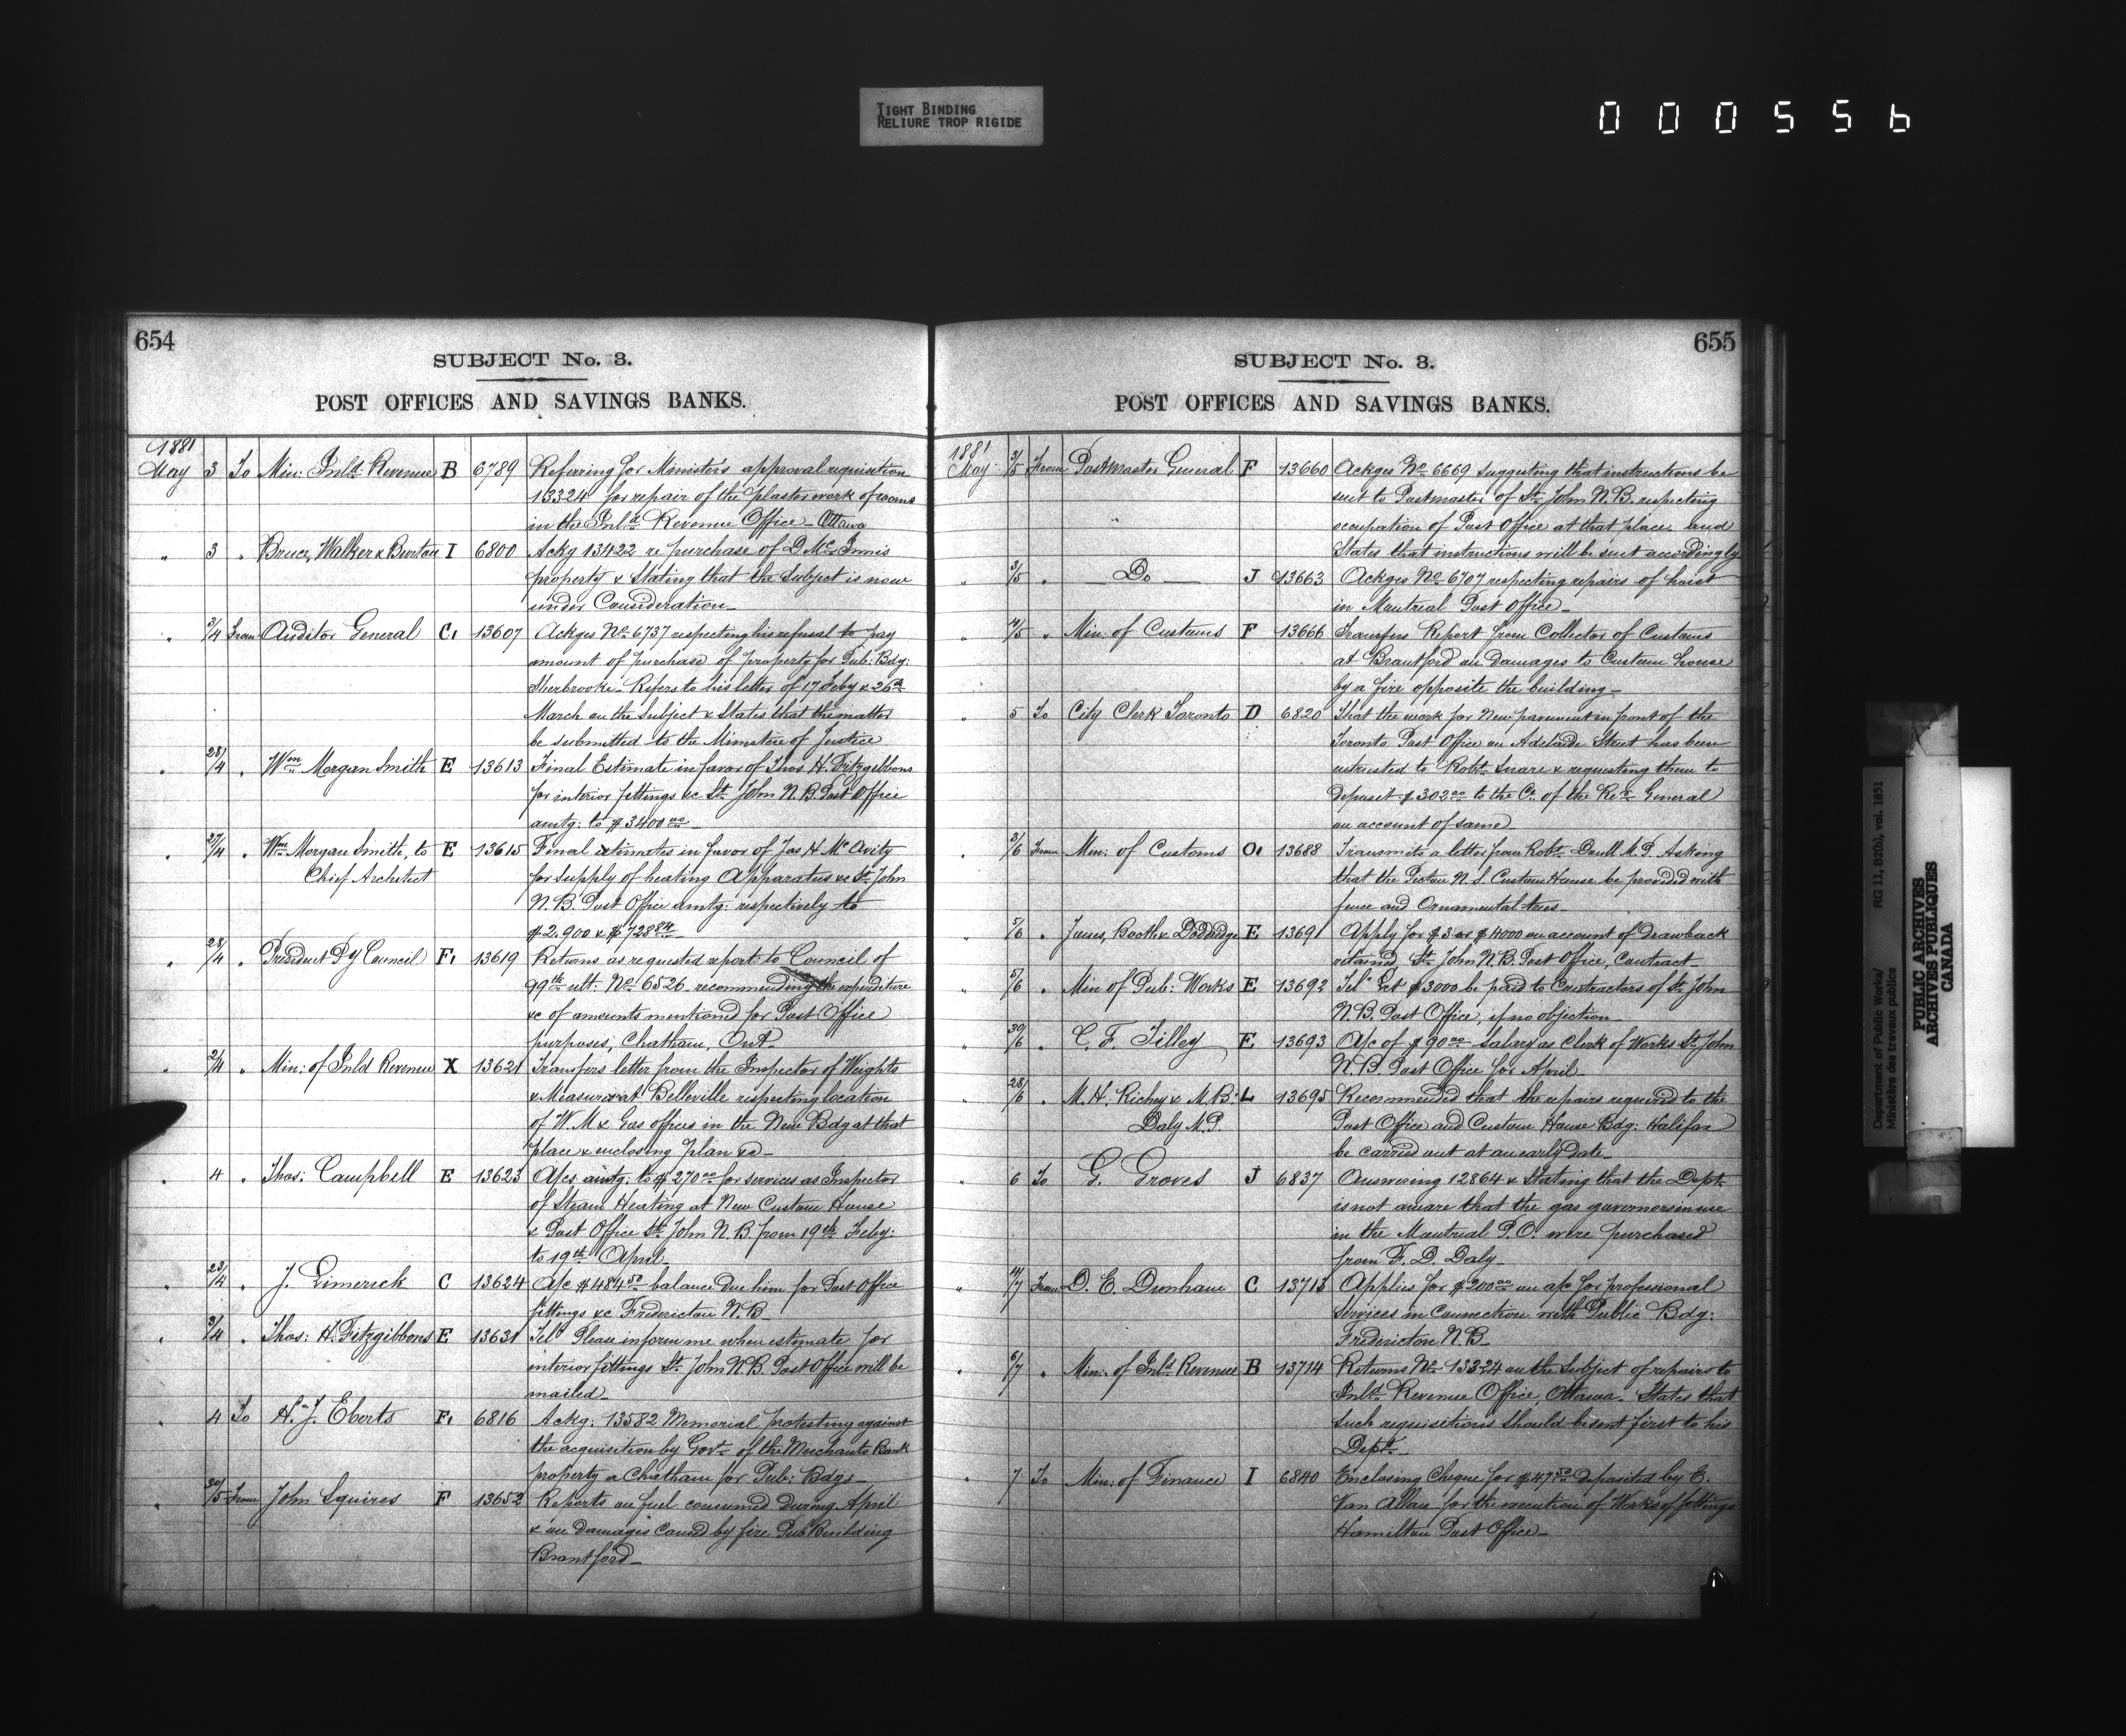 TIGHT BINDING
RELIURE TROP RIGIDE
000556
654
SUBJECT No. 3.
POST OFFICES AND SAVINGS BANKS.
1881
May 3 To Min: Inld. Revenue B 6789 Referring for Minister's approval requisition
13324 for repair of the plaster work of rooms
in the Inld. Revenue Office - Ottawa
" 3 " Bruce, Walker & Burton I 6800 Ackg 13422 re purchase of D McInnis
property & Stating that the Subject is now
under Consideration -
" 3/4 From Auditor General C. 13607 Ackges No. 6737 respecting his refusal to pay
amount of purchase of property for Pub: Bdg:
Sherbrooke - Refers to his letter of 17 Feby & 26th
March on the Subject & States that the matter
be submitted to the Minister of Justice
" 28/4 " Wm Morgan Smith E 13613 Final Estimate in favor of Thos. H. Fitzgibbons
for interior fittings &c St. John N.B. Post Office
amtg: to $3400 00 -
" 27/4 " Wm Morgan Smith, to E 13615 Final estimates in favor of Jas H McAvity
Chief Architect for supply of heating Apparatus &c St. John
N.B. Post Office amtg: respectively to
$2.900 & $728 84 -
" 28/4 " President Py Council F. 13619 Returns as requested report to Council of
ult: No. 6526 recommending the expenditure
&c of amounts mentioned for Post Office
purposes, Chatham, Ont -
" 2/4 " Min: of Inld Revenue X 13621 Transfers letter from the Inspector of Weights
& Measures at Belleville respecting location
of W. M & Gas offices in the New Bdg at that
place & enclosing plan &c -
" 4 " Thos: Campbell E 13623 A/cs amtg: to $270 00 for services as Inspector
of Steam Heating at New Custom House
& Post Office St. John N.B. from 19th Feby:
to 19th April -
" 23/4 " J. Limerick C 13624 A/c $484 50 balance due him for Post Office
fittings &c Fredericton N.B -
" 3/4 " Thos: H. Fitzgibbons E 13631 Tel: Please inform me when estimate for
interior fittings St. John N.B. Post Office will be
mailed -
" 4 To H. J. Eberts F. 6816 Ackg: 13582 Memorial protesting against
the acquisition by Govt. of the Merchants Bank
property a Chatham for Pub: Bdgs -
" 30/5 From John Squires F 13652 Reports on fuel consumed during April
& on damages caused by fire Pub Building
Brantford -
655
SUBJECT No. 3.
POST OFFICES AND SAVINGS BANKS.
1881
May 3/5 From Postmaster General F 13660 Ackges No. 6669 suggesting that instructions be
sent to Postmaster of St. John N.B. respecting
occupation of Post Office at that place, and
States that instructions will be sent accordingly
" 3/5 " Do J 13663 Ackges No. 6707 respecting repairs of hoist
in Montreal Post Office -
" 4/5 " Min: of Customs F 13666 Transfers Report from Collector of Customs
at Brantford on damages to Custom house
by a fire opposite the building -
" 5 To City Clerk Toronto D 6820 That the work for New pavement in front of the
Toronto Post Office on Adelaide Street has been
entrusted to Robt. Snare & requesting them to
deposit $302 00 to the Cr. of the Recr. General
on account of same -
" 3/6 From Min: of Customs O. 13688 Transmits a letter from Robt. Doull M.P. Asking
that the Pictou N.S. Custom House be provided with
fence and Ornamental trees -
" 5/6 " James, Booth & Doddridge E 13691 Apply for $3 or $4000 on account of drawback
retained St. John N.B. Post Office, Contract
" 5/6 " Min of Pub: Works E 13692 Tel: Let $3000 be paid to Contractors of St. John
N.B. Post Office, if no objection -
" 30/6 " C. F. Tilley E 13693 A/c of $90 00 - Salary as Clerk of Works St. John
N.B. Post Office for April -
" 28/6 " M. H. Richey & M. B. L 13695 Recommended that the repairs required to the
Daly M.P. Post Office and Custom House Bdg: Halifax
be carried out at an early date -
" 6 To G. Groves J 6837 Answering 12864 & Stating that the Dept.
is not aware that the gas governors in use
in the Montreal P.O. were purchased
from F. D. Daly -
" 4/7 From D. E. Dunham C 13713 Applies for $200 00 on a/c for professional
Services in Connection with Public Bdg:
Fredericton N.B -
" 6/7 " Min: of Inld. Revenue B 13714 Returns No. 13324 on the Subject of repairs to
Inld. Revenue Office, Ottawa. States that
such requisitions should be sent first to his
Dept. -
" 7 To Min: of Finance I 6840 Enclosing Cheque for $47 50 deposited by E.
Van Allan for the execution of Works of fittings
Hamilton Post Office -
Department of Public Works/ RG 11, B2(b), vol. 1851
Ministère des travaux publics
PUBLIC ARCHIVES
ARCHIVES PUBLIQUES
CANADA